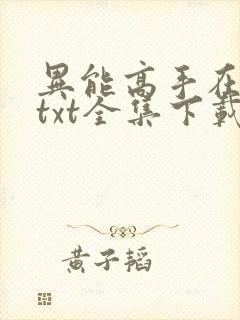 異能高手在
txt全集下載
黄子韬